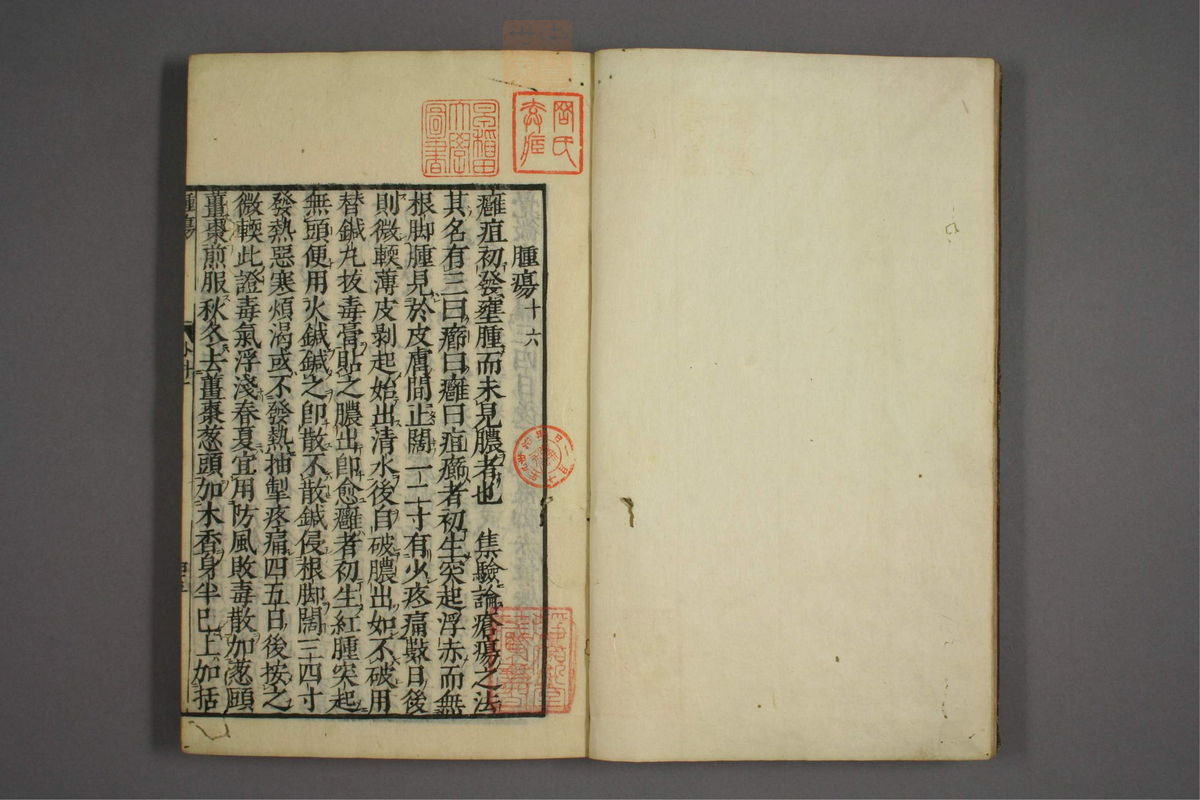 腫瘍十六
癰疽初發壅腫而未見膿者也　集驗論瘡瘍之法
其名有三曰癤曰癰曰疽癤者初生突起浮赤而無
根脚腫見於皮膚間止闊一二寸有少疼痛數日後
則微輭薄皮剝起始出清水後自破膿出如不破用
替鍼丸拔毒膏貼之膿出卽愈癰者初生紅腫突起
無頭便用火鍼鍼之卽散不散鍼侵根脚闊三四寸
發熱惡寒煩渴或不發熱抽掣疼痛四五日後按之
微輭此證毒氣浮淺春夏宜用防風敗毒散加葱頭
薑棗煎服秋冬去薑棗葱頭加木香身半已上加括
腫瘍
周氏
早稲田
大學
圖書